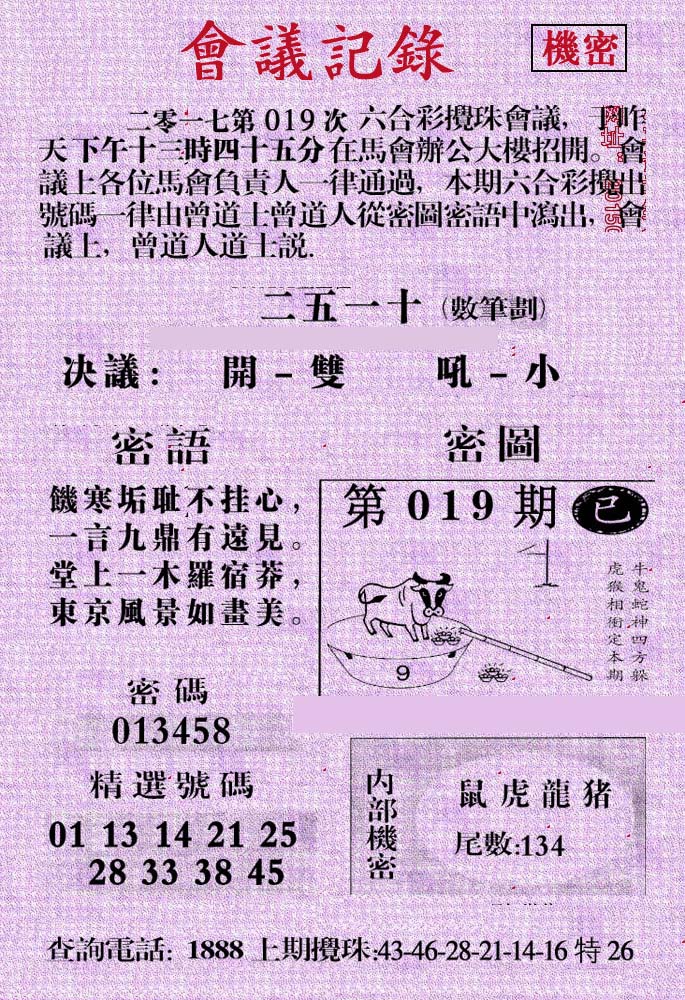 會議記錄
機密
二零一七第019次 六合彩攪珠會議，于昨
天下午十三時四十五分在馬會辦公大樓招開。會
議上各位馬會負責人一律通過，本期六合彩攪出
號碼一律由曾道士曾道人從密圖密語中瀉出，會
議上，曾道人道士説.
二五一十（數筆劃）
决議： 開－雙 吼－小
密語
饑寒垢耻不挂心，
一言九鼎有遠見。
堂上一木羅宿莽，
東京風景如畫美。
密圖
第019期 巳
牛鬼蛇神四方躲
虎猴相衝定本期
9
密碼
013458
精選號碼
01 13 14 21 25
28 33 38 45
内部機密
鼠虎龍猪
尾數:134
查詢電話: 1888 上期攪珠:43-46-28-21-14-16 特 26